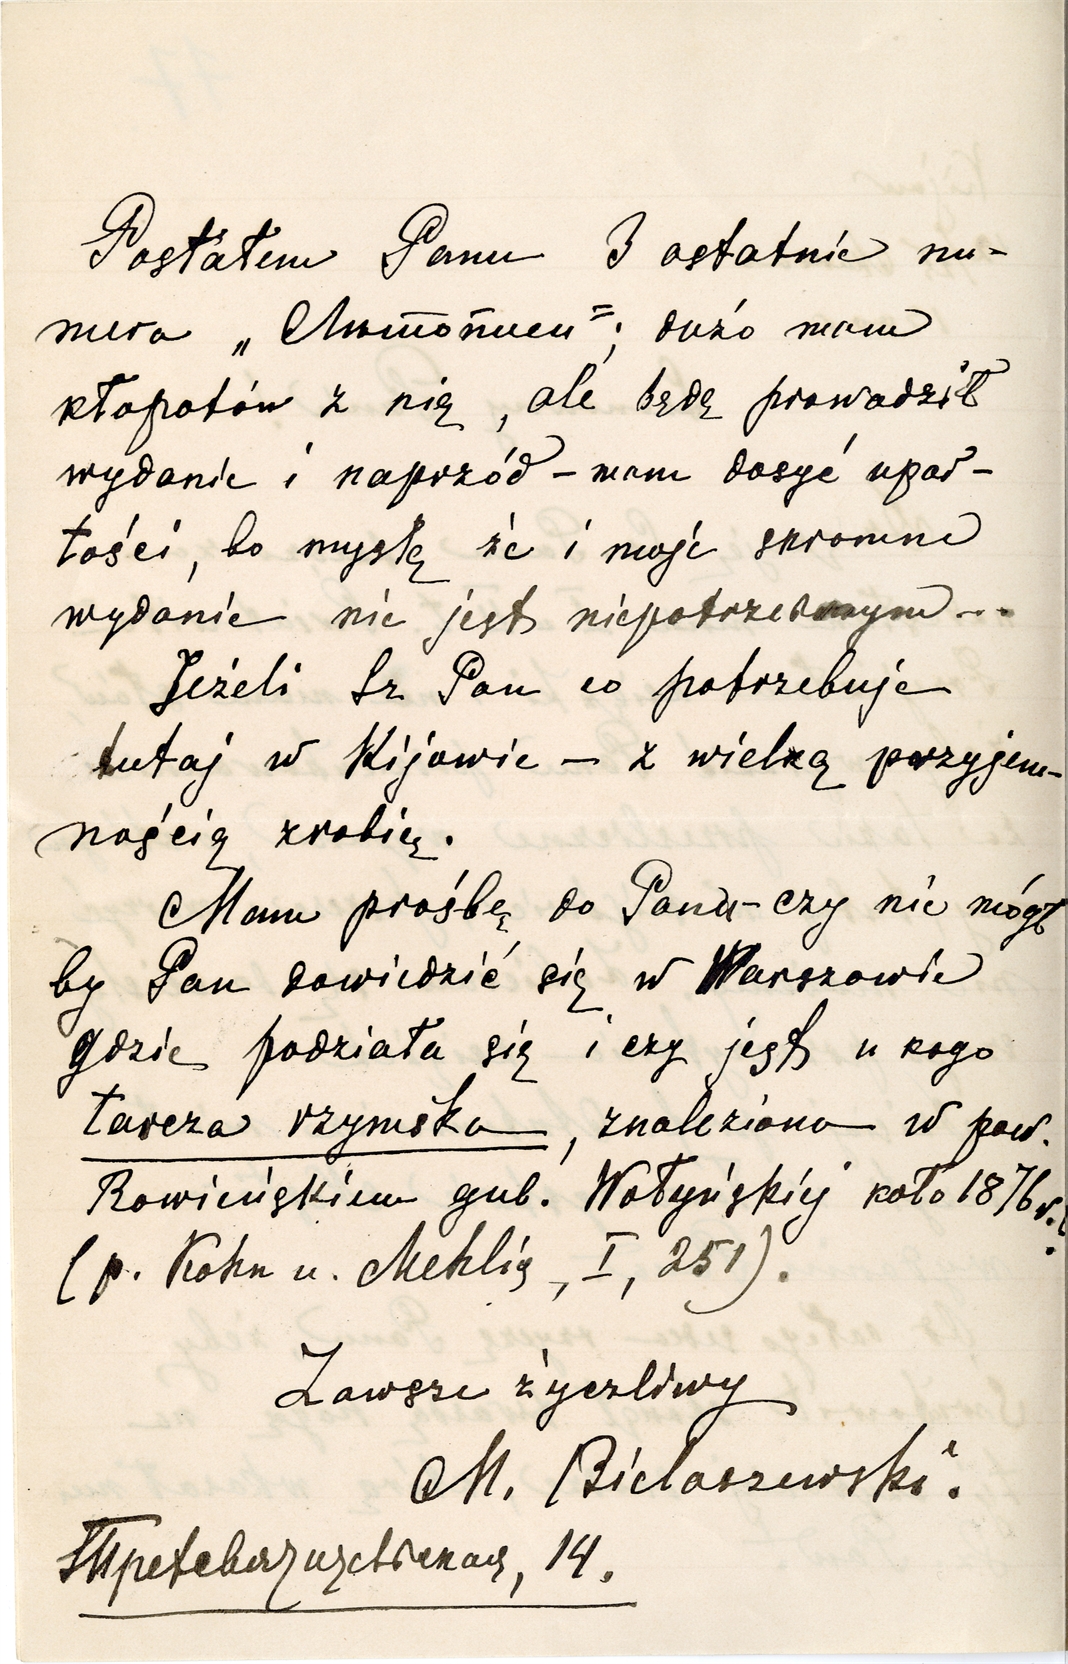 Posłałem Panu 3 ostatnie nu-
mera „Лѣтописи"; dużo mam
kłopotów z nią, ale będę prowadził
wydanie i naprzód – mam dosyć upar-
tości, bo myslę że i moje skromne
wydanie nie jest niepotrzebnym...
Jeżeli Sz Pan co potrzebuje
tutaj w Kijowie – z wielką przyjem-
nością zrobię.
Mam prośbę do Pana – czy nie mógł
by Pan dowiedzić się w Warszawie
gdzie podziała się i czy jest u kogo
tarcza rzymska, znaleziona w pow.
Rowieńskiem gub. Wołyńskiej koło 1876 r.
(p. Kohn u. Mehlis, I, 251).
Zawsze życzliwy
M. Bielaszewski.
14.